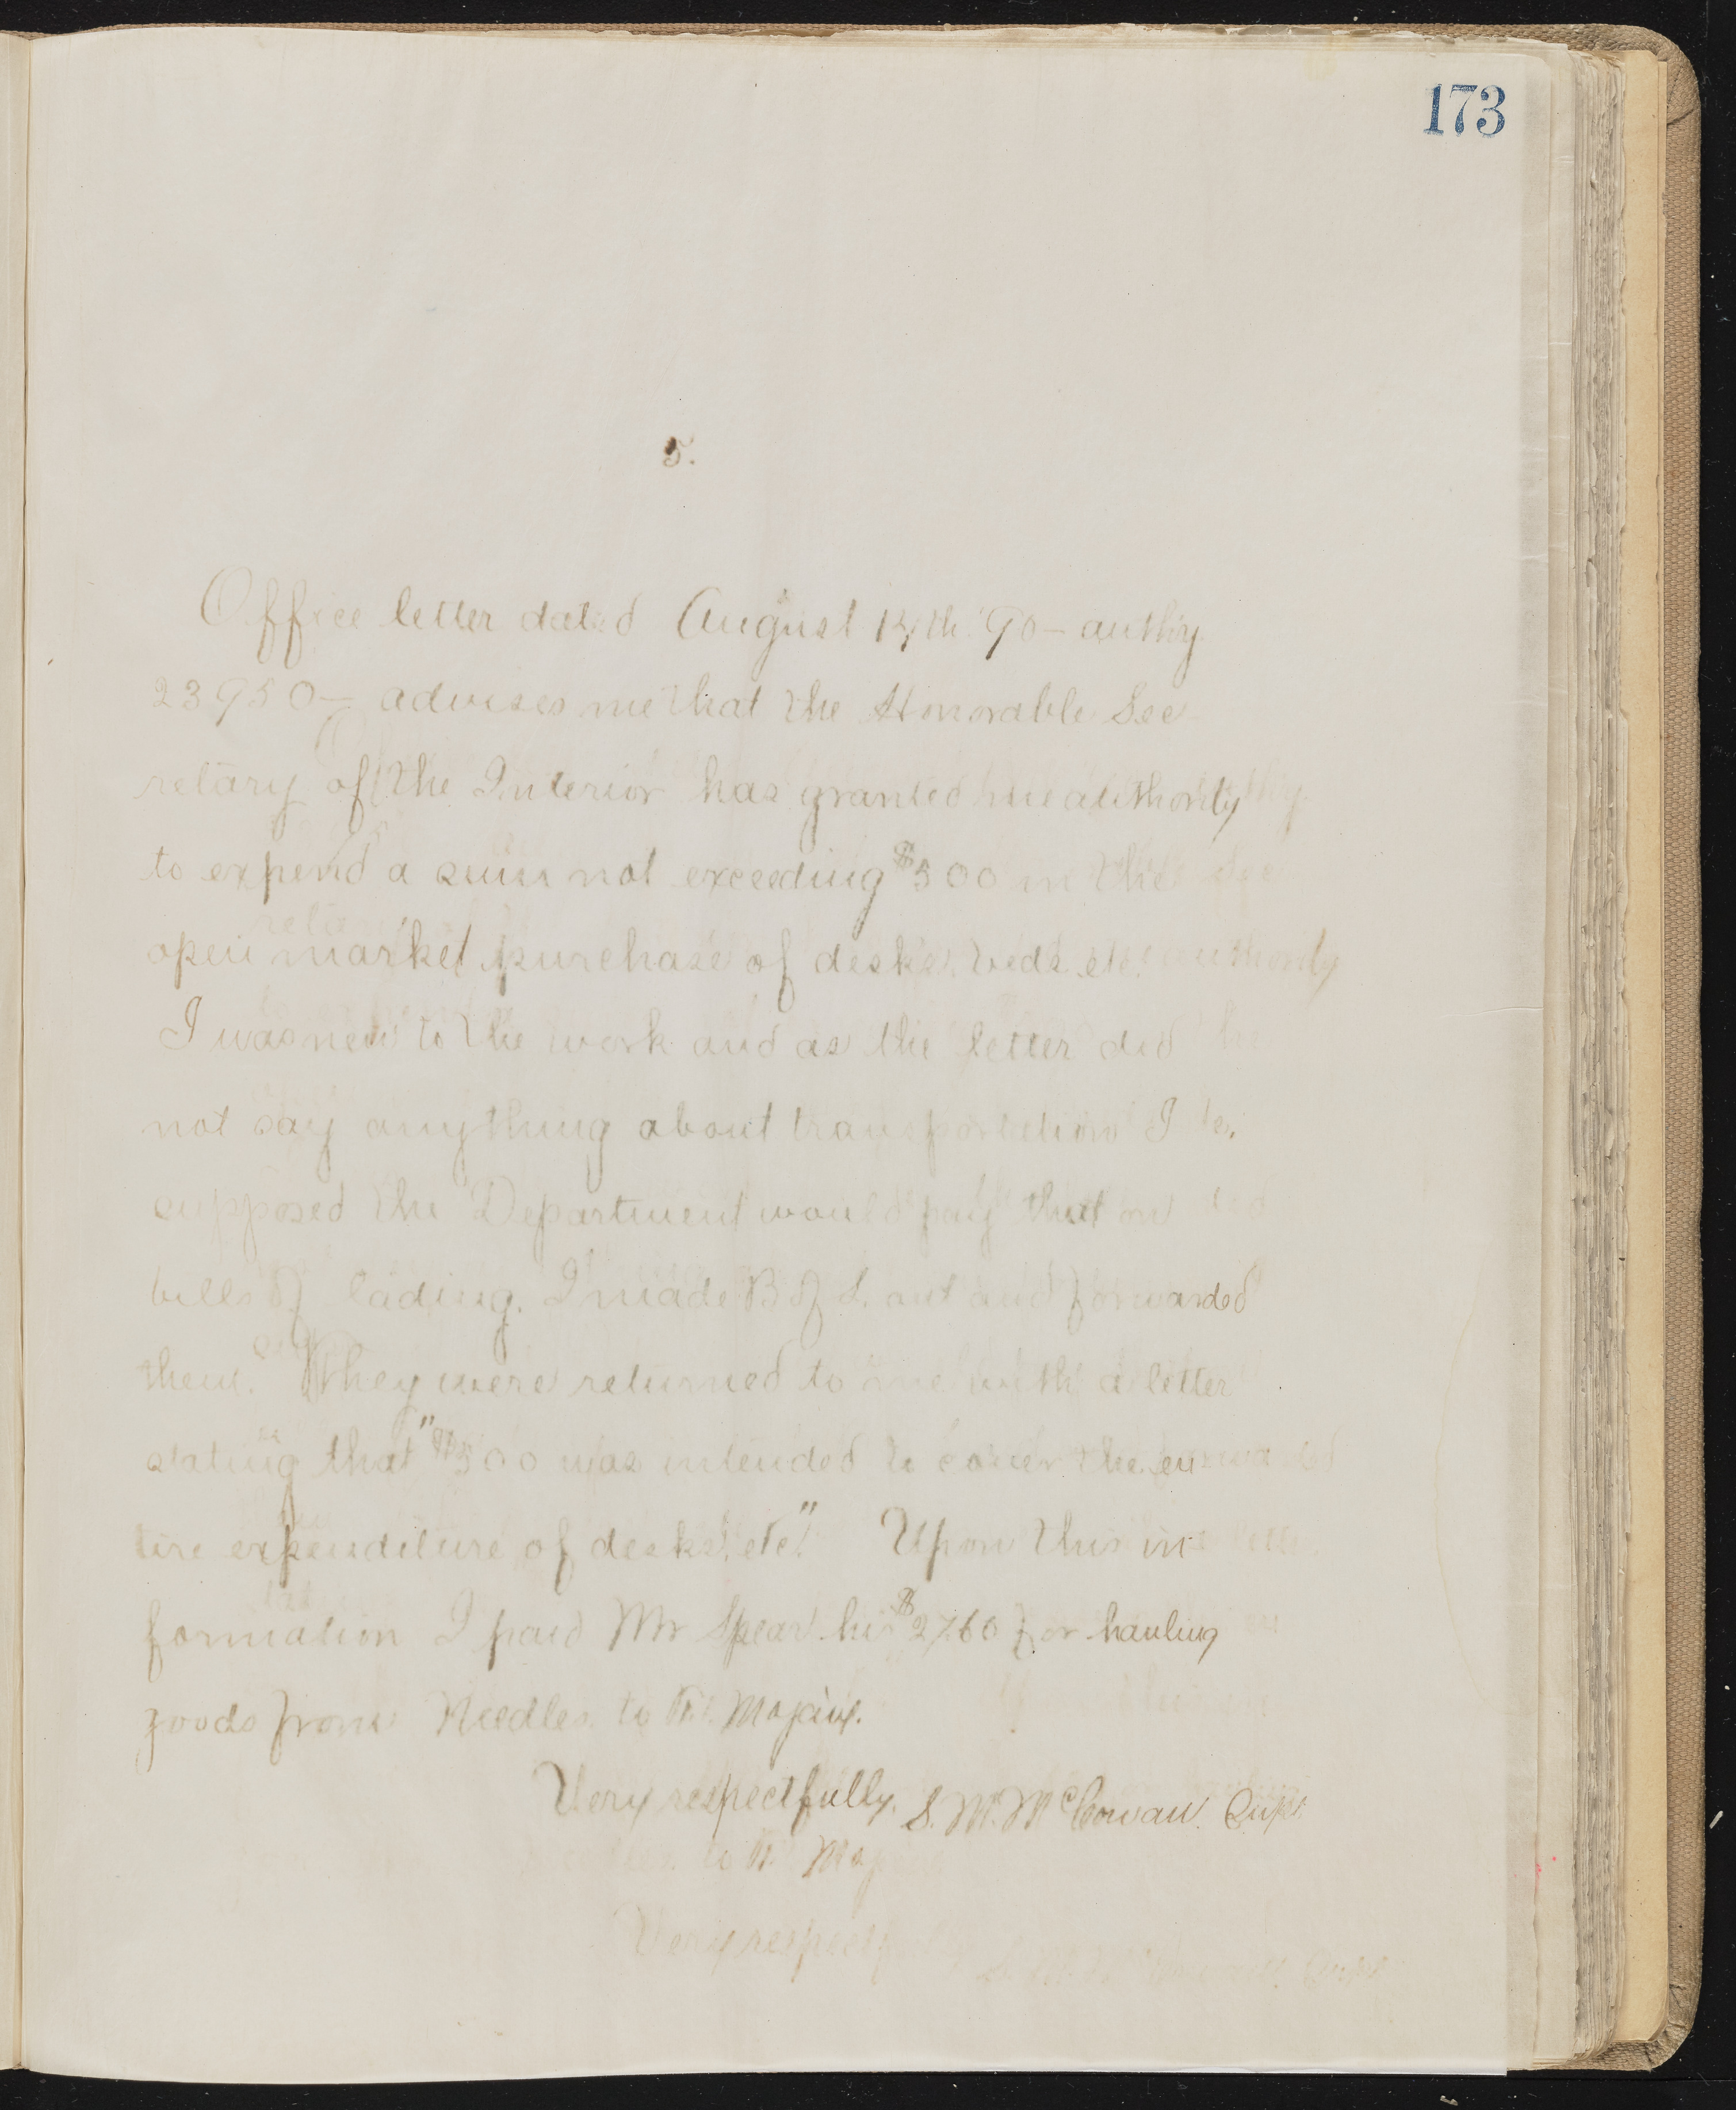 173
5.
Office letter dated August 14th '90 — authy
23950 — advises me that the Honorable Sec
retary of the Interior has granted me authority
to expend a sum not exceeding $500 in the
open market purchase of desks, beds, etc.
I was new to the work and as the letter did
not say anything about transportation I
supposed the Department would pay that on
bills of lading. I made B of L. out and forwarded
them. They were returned to me with a letter
stating that "$500 was intended to cover the en
tire expenditure of desks, etc." Upon this in
formation I paid Mr Spear his $2760 for hauling
goods from Needles to Ft. Mojave.
Very respectfully, S. M. McCowan. Supt.
to Ft. Moj
Very respectf